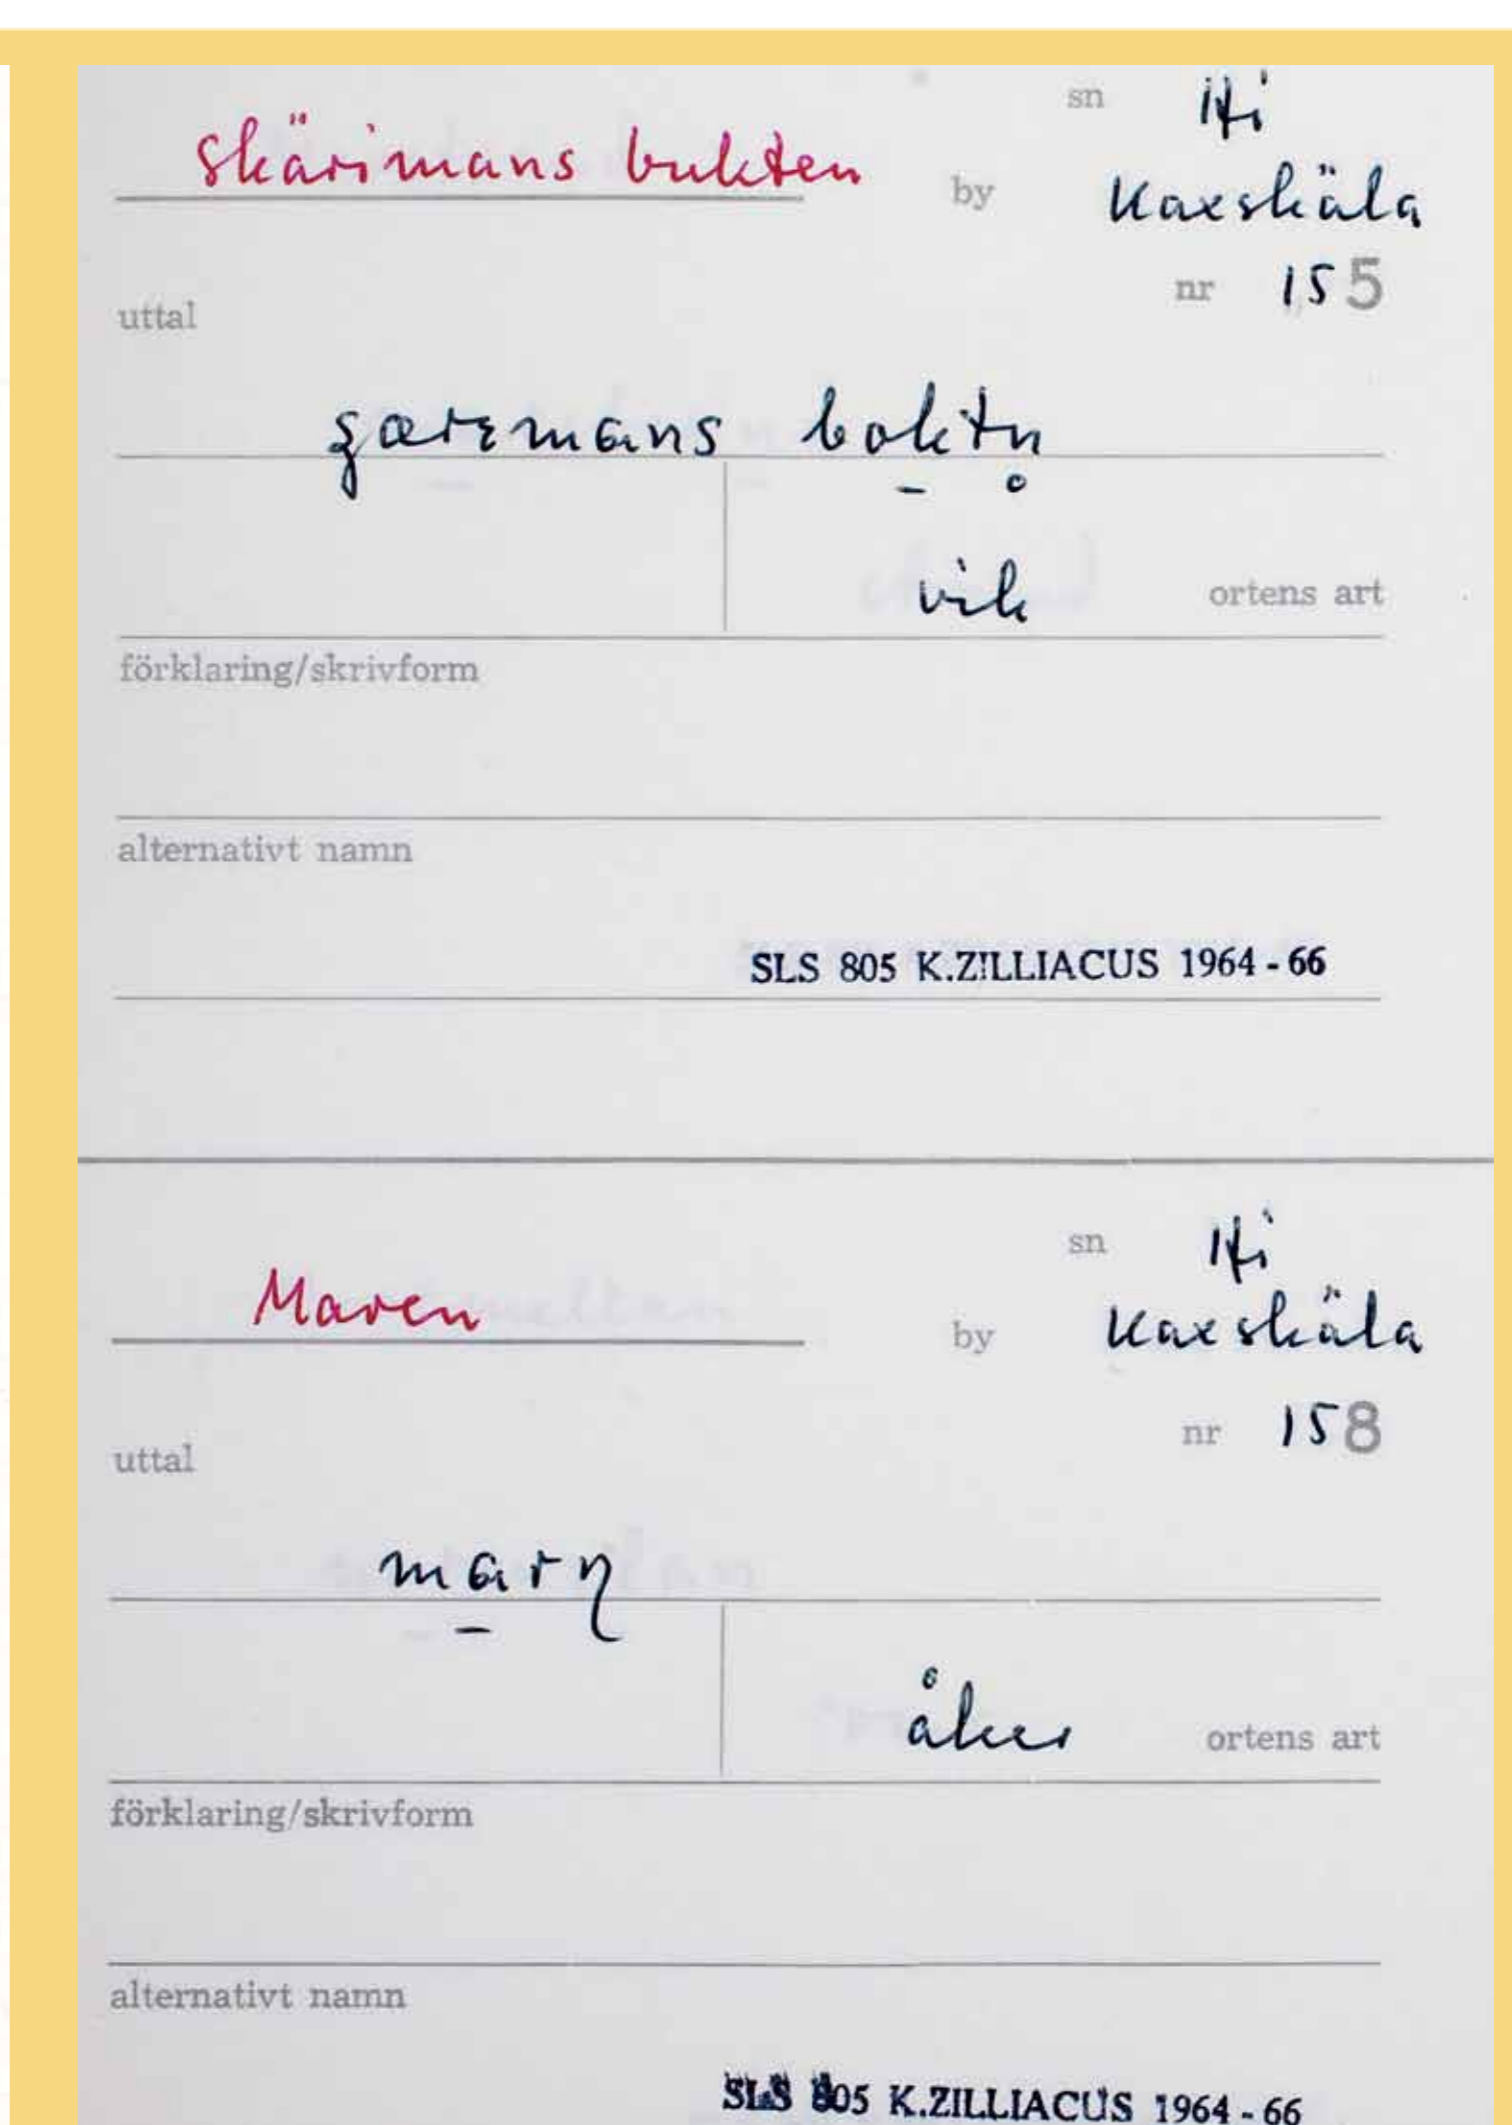 sn Hi
Skärimans bukten
by Kaxskäla
nr 155
uttal
boktn
vik ortens art
förklaring/skrivform
alternativt namn
SLS 805 K.ZILLIACUS 1964-66
sn Hi
Maren
by Kaxskäla
nr 158
uttal
marn
åker ortens art
förklaring/skrivform
alternativt namn
SLS 805 K.ZILLIACUS 1964-66